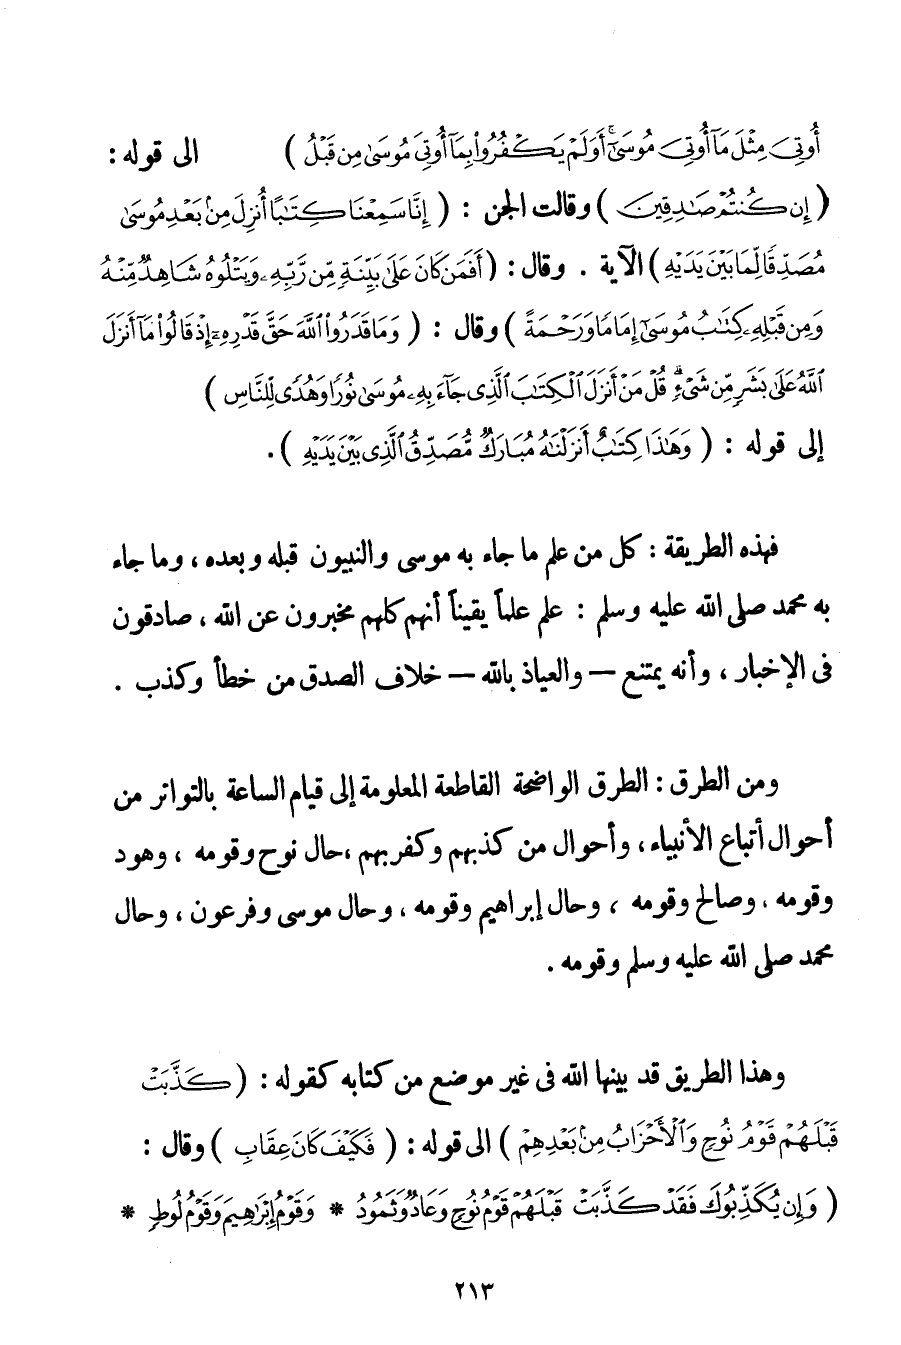 أُوتِيَ مِثْلَ مَآ أُوتِيَ مُوسَىٰٓ ۚ أَوَلَمْ يَكْفُرُوا۟ بِمَآ أُوتِيَ مُوسَىٰ مِن قَبْلُ ) الى قوله :
( إِن كُنتُمْ صَـٰدِقِينَ ) وقالت الجن : ( إِنَّا سَمِعْنَا كِتَـٰبًا أُنزِلَ مِنۢ بَعْدِ مُوسَىٰ
مُصَدِّقًا لِّمَا بَيْنَ يَدَيْهِ ) الآية . وقال : ( أَفَمَن كَانَ عَلَىٰ بَيِّنَةٍ مِّن رَّبِّهِۦ وَيَتْلُوهُ شَاهِدٌ مِّنْهُ
وَمِن قَبْلِهِۦ كِتَـٰبُ مُوسَىٰٓ إِمَامًا وَرَحْمَةً ) وقال : ( وَمَا قَدَرُوا۟ ٱللَّهَ حَقَّ قَدْرِهِۦٓ إِذْ قَالُوا۟ مَآ أَنزَلَ
ٱللَّهُ عَلَىٰ بَشَرٍ مِّن شَىْءٍ ۗ قُلْ مَنْ أَنزَلَ ٱلْكِتَـٰبَ ٱلَّذِى جَآءَ بِهِۦ مُوسَىٰ نُورًا وَهُدًى لِّلنَّاسِ )
إلى قوله : ( وَهَـٰذَا كِتَـٰبٌ أَنزَلْنَـٰهُ مُبَارَكٌ مُّصَدِّقُ ٱلَّذِى بَيْنَ يَدَيْهِ ) .
فهذه الطريقة : كل من علم ما جاء به موسى والنبيون قبله وبعده ، وما جاء
به محمد صلى الله عليه وسلم : علم علماً يقيناً أنهم كلهم مخبرون عن الله ، صادقون
فى الإخبار ، وأنه يمتنع — والعياذ بالله — خلاف الصدق من خطأ وكذب .
ومن الطرق : الطرق الواضحة القاطعة المعلومة إلى قيام الساعة بالتواتر من
أحوال أتباع الأنبياء ، وأحوال من كذبهم وكفر بهم ، حال نوح وقومه ، وهود
وقومه ، وصالح وقومه ، وحال إبراهيم وقومه ، وحال موسى وفرعون ، وحال
محمد صلى الله عليه وسلم وقومه .
وهذا الطريق قد بينها الله فى غير موضع من كتابه كقوله : ( كَذَّبَتْ
قَبْلَهُمْ قَوْمُ نُوحٍ وَٱلْأَحْزَابُ مِنۢ بَعْدِهِمْ ) الى قوله : ( فَكَيْفَ كَانَ عِقَابِ ) وقال :
( وَإِن يُكَذِّبُوكَ فَقَدْ كَذَّبَتْ قَبْلَهُمْ قَوْمُ نُوحٍ وَعَادٌ وَثَمُودُ * وَقَوْمُ إِبْرَٰهِيمَ وَقَوْمُ لُوطٍ *
٢١٣